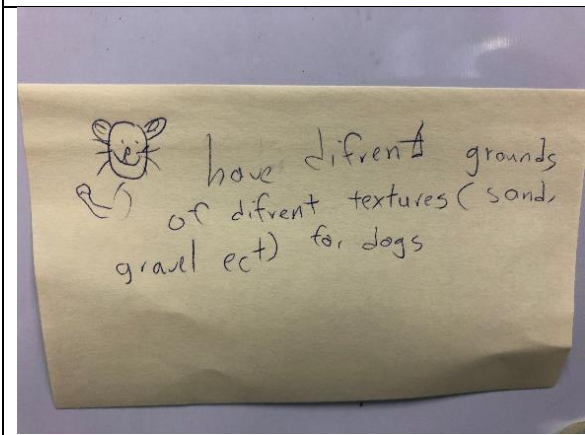 have difrent grounds
of difrent textures (sand,
gravel ect) for dogs